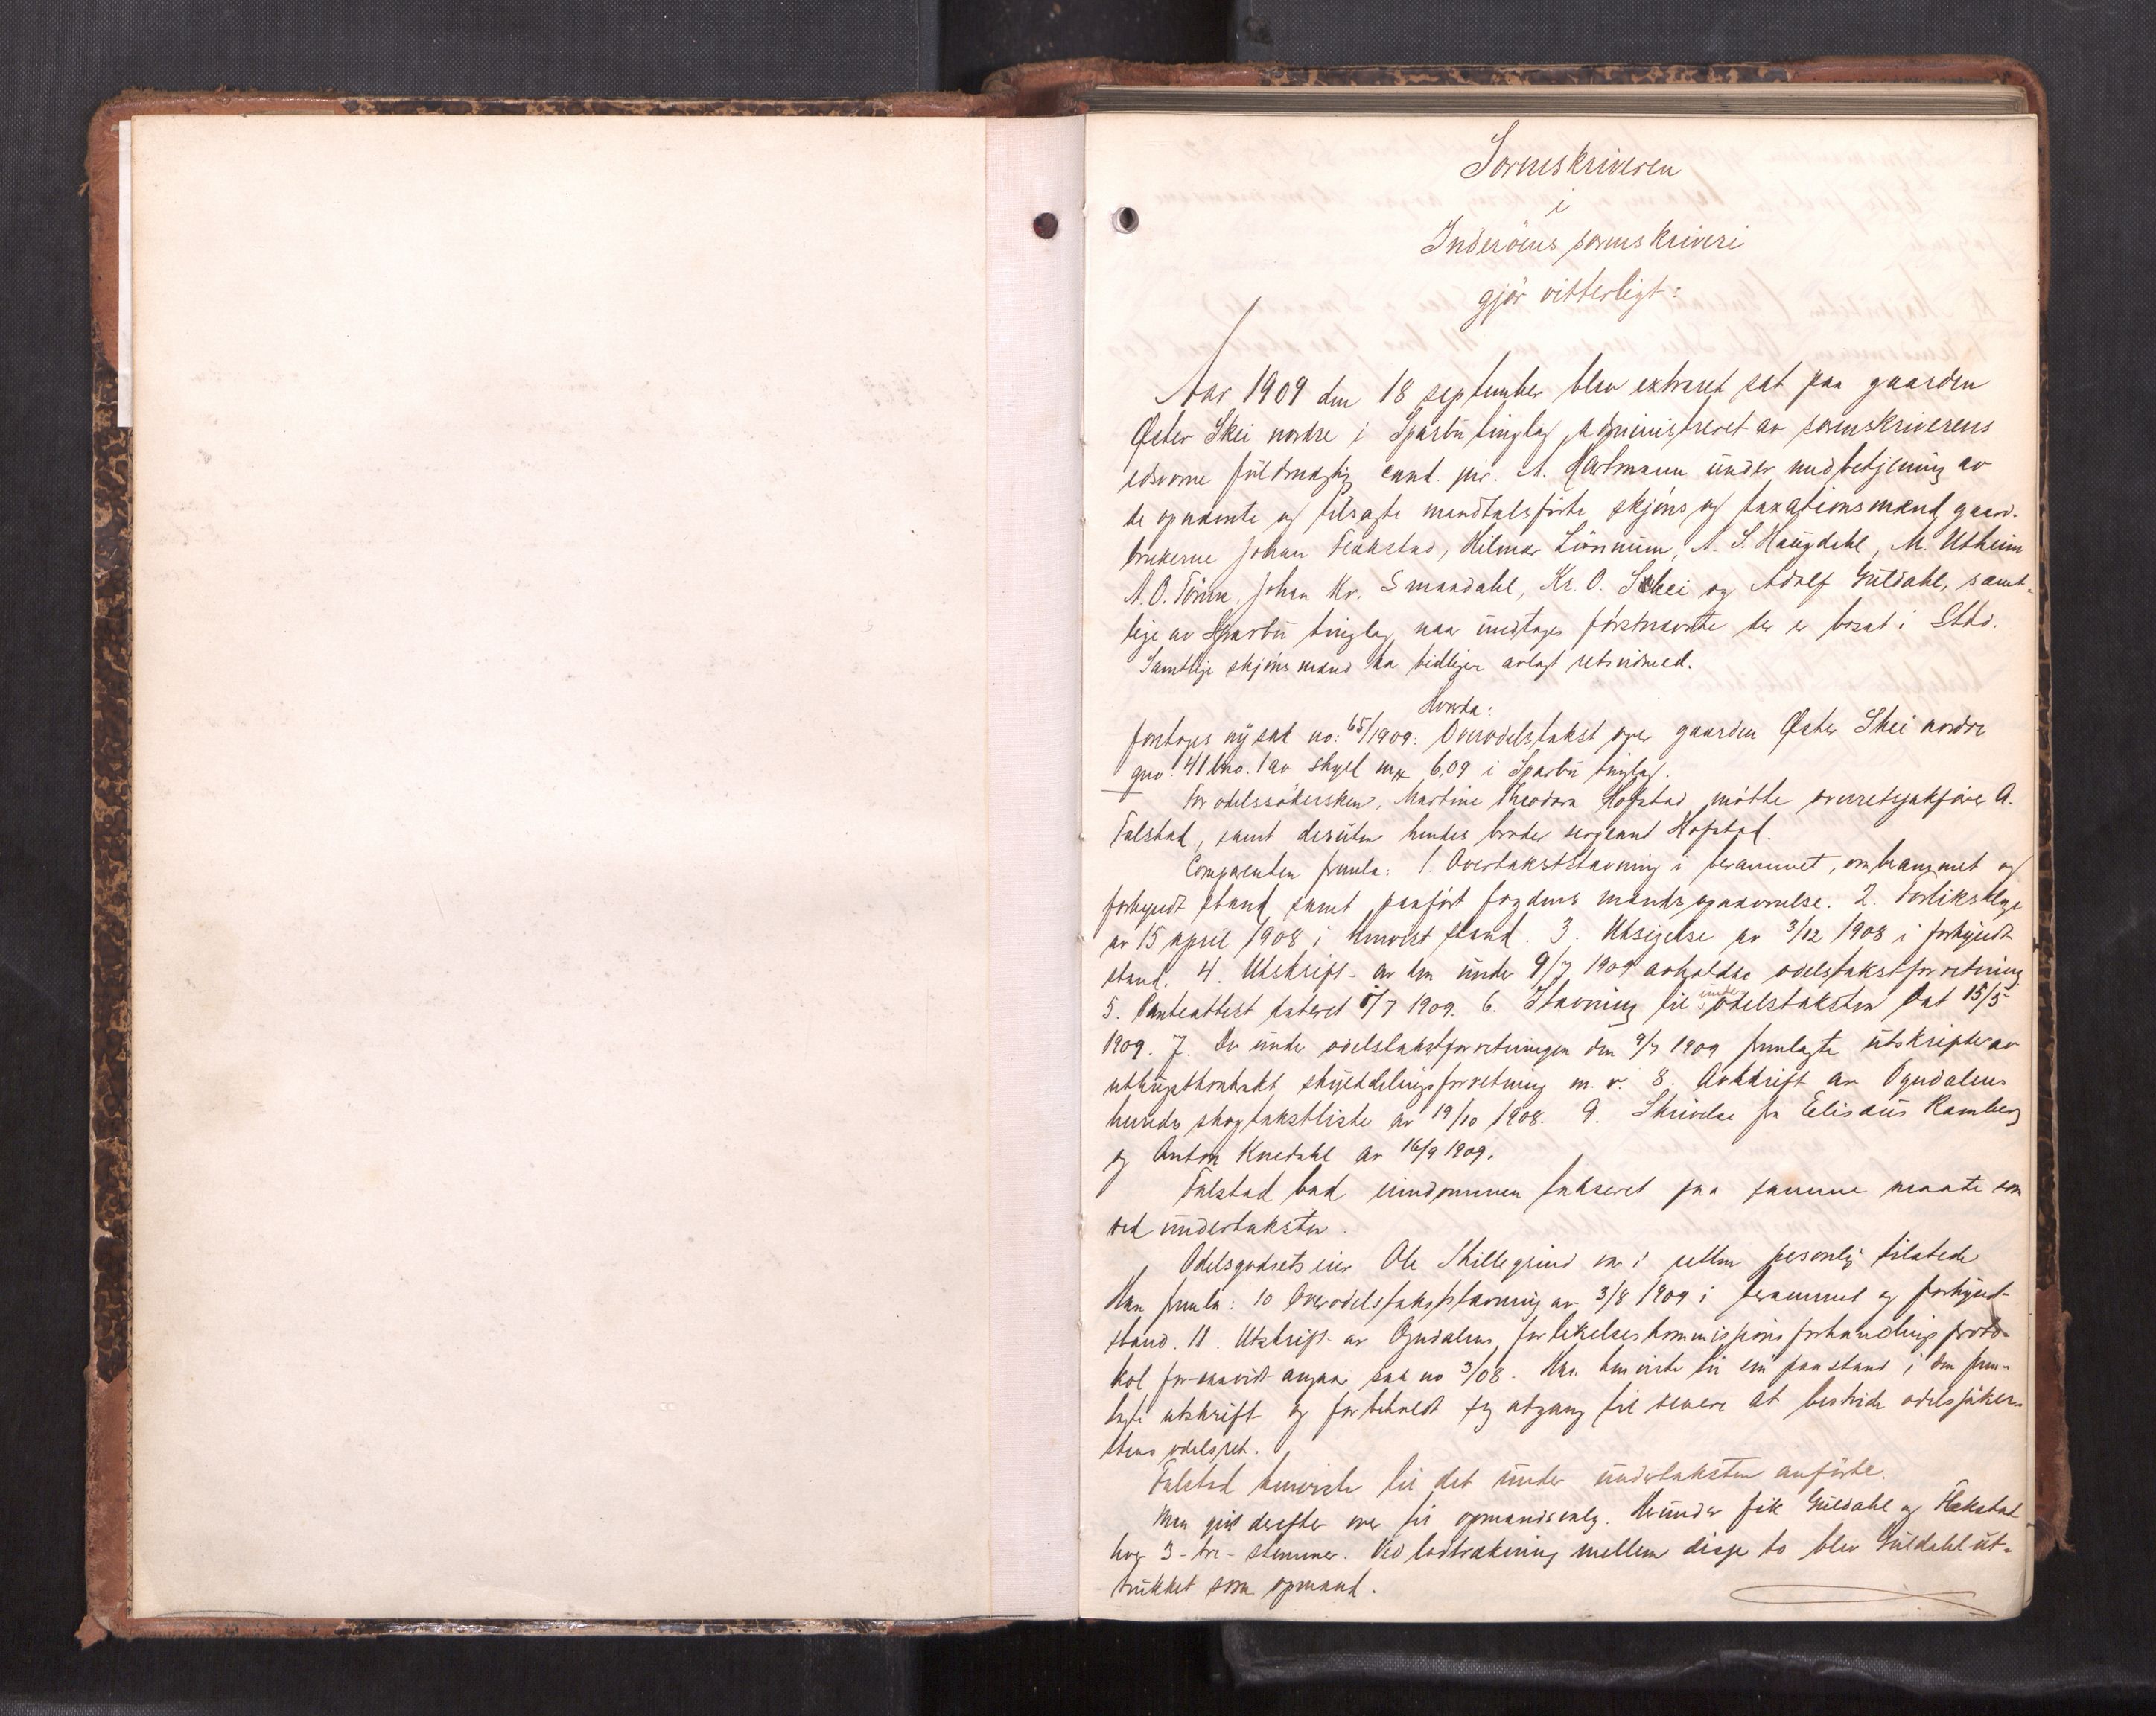 Sorenskriveren
i
Inderöens sorenskriveri
gjör vitterligt:
Aar 1909 den 18 september blev extraret sat paa gaarden
Öster Skei nordre i Sparbu tinglag, administreret av sorenskriverens
edsvorne fuldmægtig cand. jur. A. Hartmann under medbetjening av
de opnævnte og tilsagte mandtalsförte skjöns og taxationsmænd gaard-
brukerne Johan Flækstad, Hilmar Lönnum, A. S. Haugdahl, M. Utheim
A. O. Tönne, Johan Kr. Smaadahl, Kr. O. Skei og Adolf Guldahl, samt-
lige av Sparbu tinglag, naar undtages förstnævnte der er bosat i Stod.
Samtlige skjönsmænd har tidligere avlagt retsvidneed.
Hvorda:
foretoges ny sak no: 65/1909: Overodelstakst over gaarden Öster Skei nordre
gno. 41 bno. 1 av skyld mk 6,09 i Sparbu tinglag.
For odelssökersken, Martine Theodora Hofstad mötte overretssakförer A.
Falstad, samt desuten hendes broder sergeant Hofstad.
Comparenten fremla: 1. Overtakststævning i berammet, ombrammet og
forkyndt stand samt paafört fogdens mandsopnævnelse. 2. Forliksklage
av 15 april 1908 i henvist stand. 3. Utsigelse av 3/12 1908 i forkyndt
stand. 4. Utskrift av den under 9/7 1909 avholdte odelstakstforretning
5. Panteattest dateret 8/7 1909. 6. Stævning til under odelstaksten dat 15/5
1909. 7. De under odelstakstforretningen den 9/7 1909 fremlagte utskrifter av
uthugstkontrakt skylddelingsforretning m. v. 8. Avskrift av Ogndalens
herreds skogtakstliste av 19/10 1908. 9. Skrivelse fra Elisæus Ramberg
og Anton Knedahl av 16/9 1909.
Falstad bad eiendommen takseret paa samme maate som
ved undertaksten.
Odelsgodsets eier Ole Skillegrind var i retten personlig tilstede
Han fremla: 10 Overodelstakststævning av 3/8 1909 i berammet og forkyndt
stand. 11. Utskrift av Ogndalens forlikelseskommissions forhandlingsproto-
kol forsaavidt angaar sak no 3/08. Han henviste til sin paastand i den frem-
lagte utskrift og forbeholdt sig adgang til senere at bestride odelssöker-
skens odelsret.
Falstad henviste til det under undertaksten anförte.
Man gik derefter over til opmandsvalg. Herunder fik Guldahl og Flækstad
hver 3 - tre - stemmer. Ved lodtrækning mellem disse to blev Guldahl ut-
trukket som opmand.